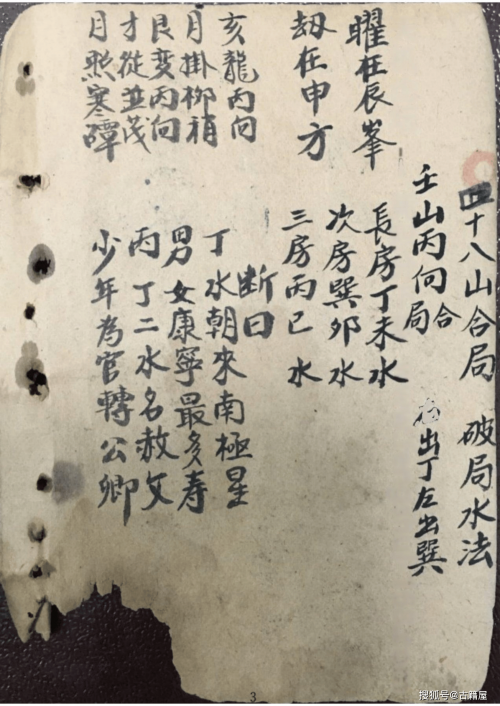 四十八山合局 破局水法
壬山丙向合局 出丁左出巽
曜在辰峯
刼在申方
長房丁未水
次房巽卯水
三房丙巳水
亥龍丙向
月掛柳梢
艮变丙向
才從並茂
月照寒潭
断曰
丁水朝來南極星
男女康寧最多寿
丙丁二水名赦文
少年為官轉公卿
3
搜狐号@古籍屋